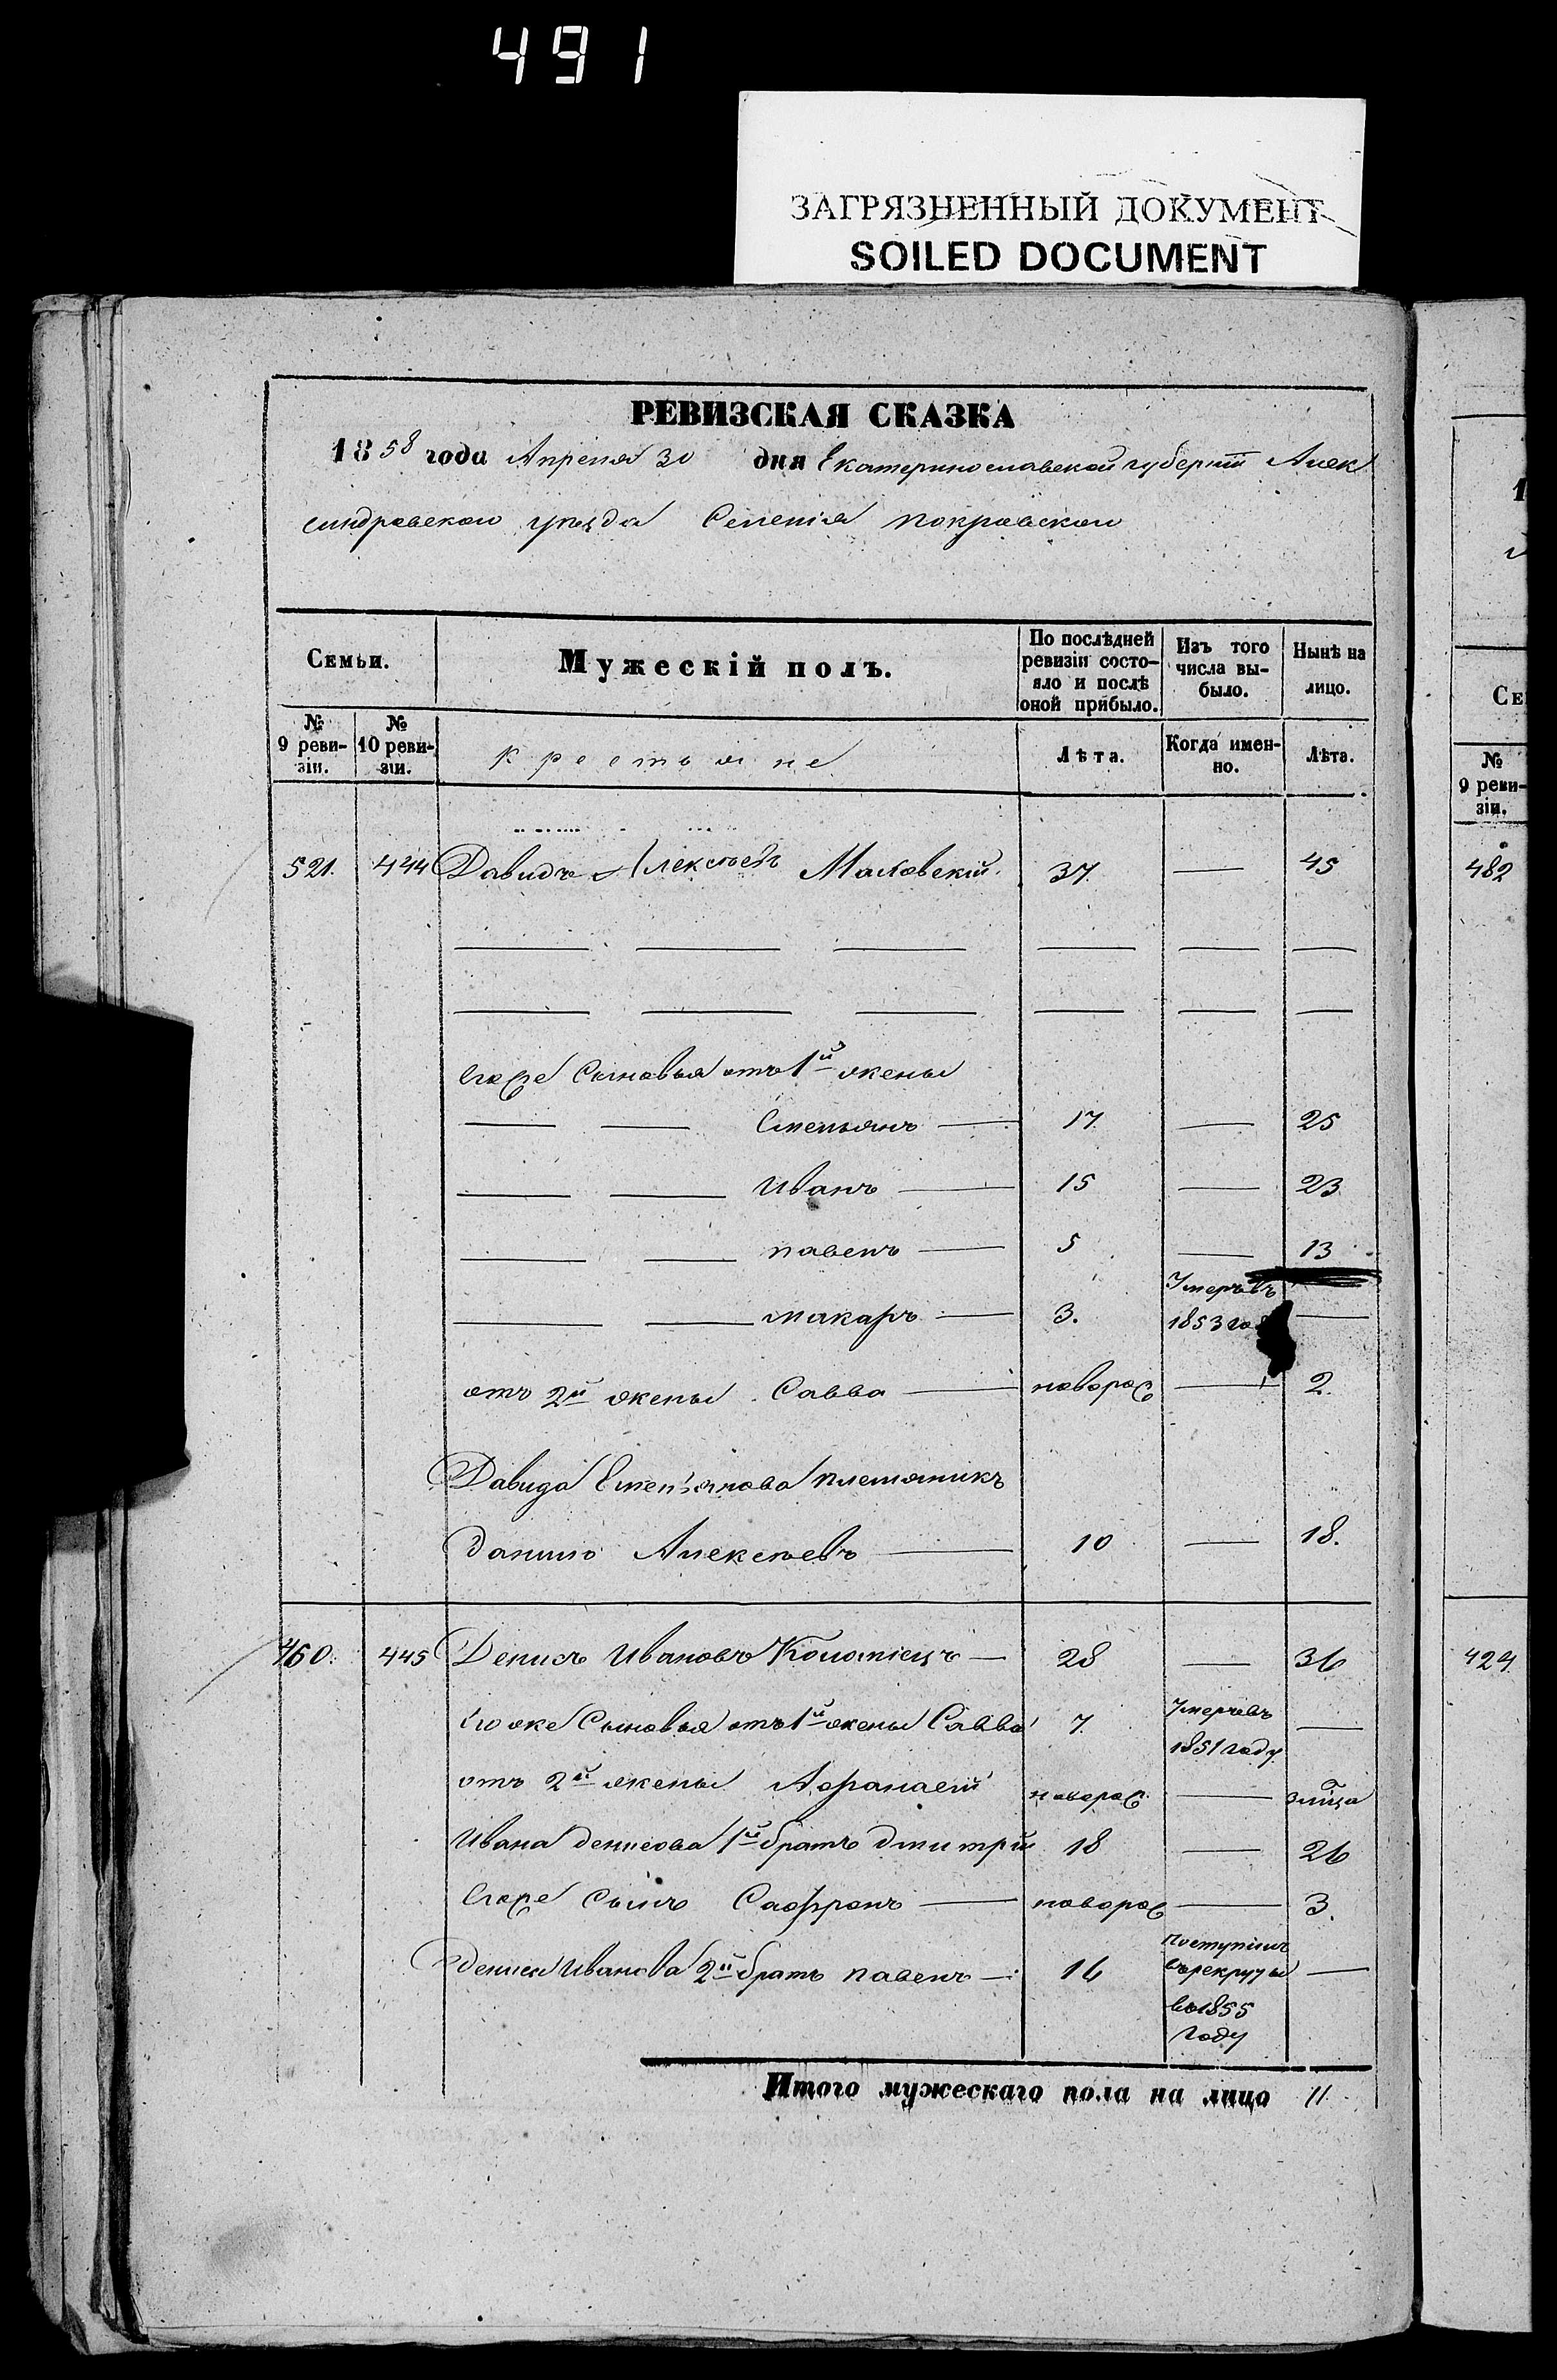 491
ЗАГРЯЗНЕННЫЙ ДОКУМЕНТ
SOILED DOCUMENT
РЕВИЗСКАЯ СКАЗКА
1858 года Апреля 30 дня Екатеринославской губернiи Алек
сандровскаго уѣзда Селенiя Покровскаго
Семьи.
Мужескiй полъ.
По послѣдней ревизiи состо-
яло и послѣ
оной прибыло.
Изъ того
числа вы-
было.
Нынѣ на
лицо.
№
9 реви-
зiи.
№
10 реви-
зiи.
Крестьяне
Лѣта.
Когда имен-
но.
Лѣта.
521. 444 Давидъ Алексѣевъ Маловскiй. 37 — 45
Егоже Сыновья отъ 1й жены
Степанъ — 17 — 25
Иванъ — 15 — 23
павелъ — 5 — 13
макаръ — 3. Умеръ въ 1853 —
отъ 2й жены Савва — новорож — 2.
Давида племянникъ
данило Алексѣевъ — 10 — 18.
460. 445 Денисъ Ивановъ Коломiецъ — 28 — 36
Его же Сыновья отъ 1й жены Савва 7 Умеръ въ 1851 году —
отъ 2й жены Афанасiй новорож — 3 мца
Ивана денисова 1й братъ дмитрiй 18 — 26
Егоже Сынъ Сафронъ — новорож — 3.
Дениса Иванова 2й братъ павелъ — 16 поступилъ
въ рекруты —
въ 1855
году
Итого мужескаго пола на лицо 11.
1
Се
№
9 реви-
зiи.
482
429